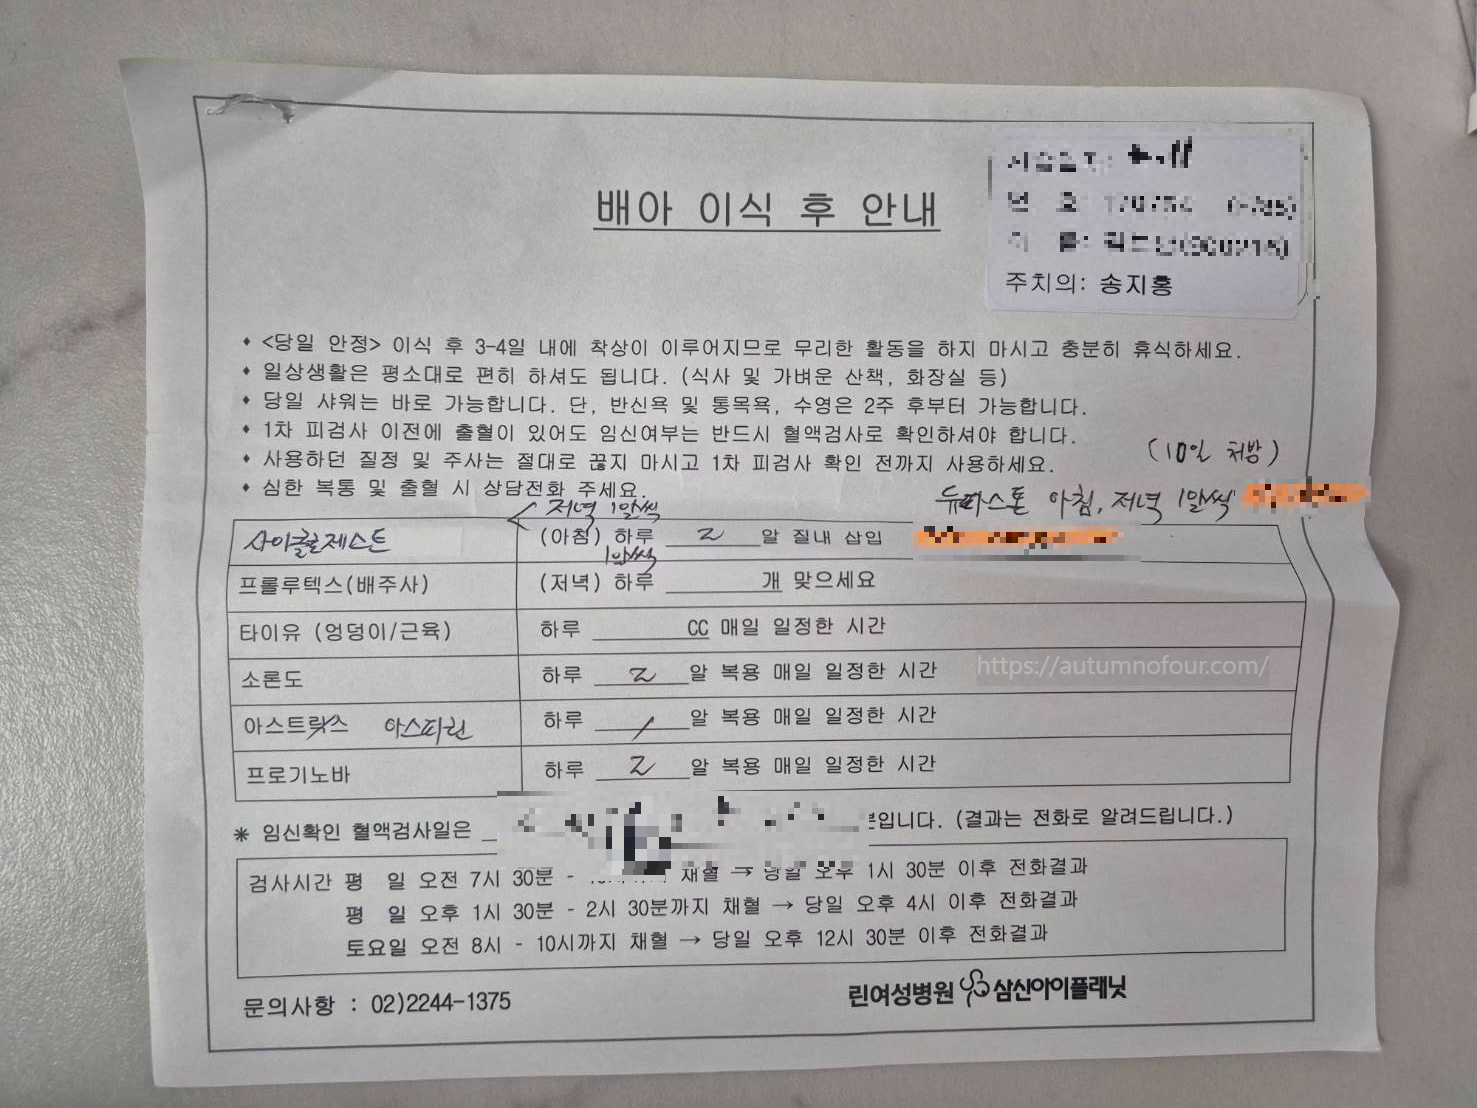 배아 이식 후 안내
주치의: 송지홍
• <당일 안정> 이식 후 3-4일 내에 착상이 이루어지므로 무리한 활동을 하지 마시고 충분히 휴식하세요.
• 일상생활은 평소대로 편히 하셔도 됩니다. (식사 및 가벼운 산책, 화장실 등)
• 당일 샤워는 바로 가능합니다. 단, 반신욕 및 통목욕, 수영은 2주 후부터 가능합니다.
• 1차 피검사 이전에 출혈이 있어도 임신여부는 반드시 혈액검사로 확인하셔야 합니다.
• 사용하던 질정 및 주사는 절대로 끊지 마시고 1차 피검사 확인 전까지 사용하세요.
(10일 처방)
• 심한 복통 및 출혈 시 상담전화 주세요.
듀파스톤 아침, 저녁 1알씩
저녁 1알씩
사이클로제스트 (아침) 하루 2 알 질내 삽입
1알씩
프롤루텍스(배주사) (저녁) 하루 개 맞으세요
타이유 (엉덩이/근육) 하루 CC 매일 일정한 시간
https://autumnofour.com/
소론도 하루 2 알 복용 매일 일정한 시간
아스트릭스 아스피린 하루 1 알 복용 매일 일정한 시간
프로기노바 하루 2 알 복용 매일 일정한 시간
※ 임신확인 혈액검사일은 분입니다. (결과는 전화로 알려드립니다.)
검사시간 평 일 오전 7시 30분 - 채혈 → 당일 오후 1시 30분 이후 전화결과
평 일 오후 1시 30분 - 2시 30분까지 채혈 → 당일 오후 4시 이후 전화결과
토요일 오전 8시 - 10시까지 채혈 → 당일 오후 12시 30분 이후 전화결과
문의사항 : 02)2244-1375
린여성병원 삼신아이플래닛